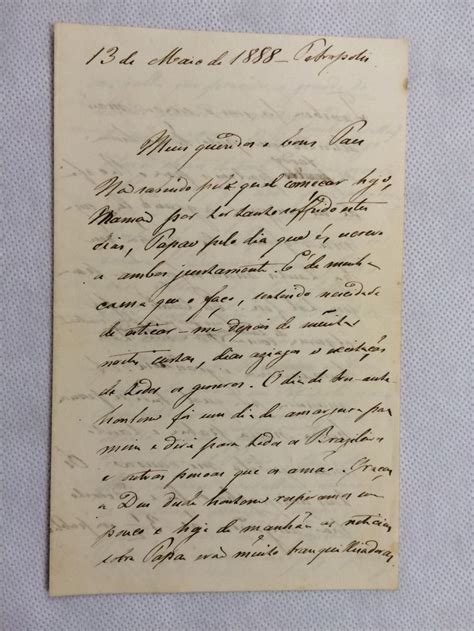 13 de Maio de 1888 - Petropolis
Meus queridos e bons Paes
Não sabendo pelo qual começar hoje,
Mamãe por ter tanto soffrido estes
dias, Papae pelo dia que é, escrevo
a ambos juntamente. É de minha
cama que o faço, sentindo necessidade
de esticar-me depois de muitas
noites curtas, dias aziagos e excitações
de todos os generos. O dia de tres-ante-
hontem foi um dia de amargura para
mim e direi para todos os Brazileiros
e outras pessoas que os amão. Graças
a Deus desde hontem respiramos um
pouco e hoje de manhãa as noticias
sobre Papae erão muito tranquillisadoras